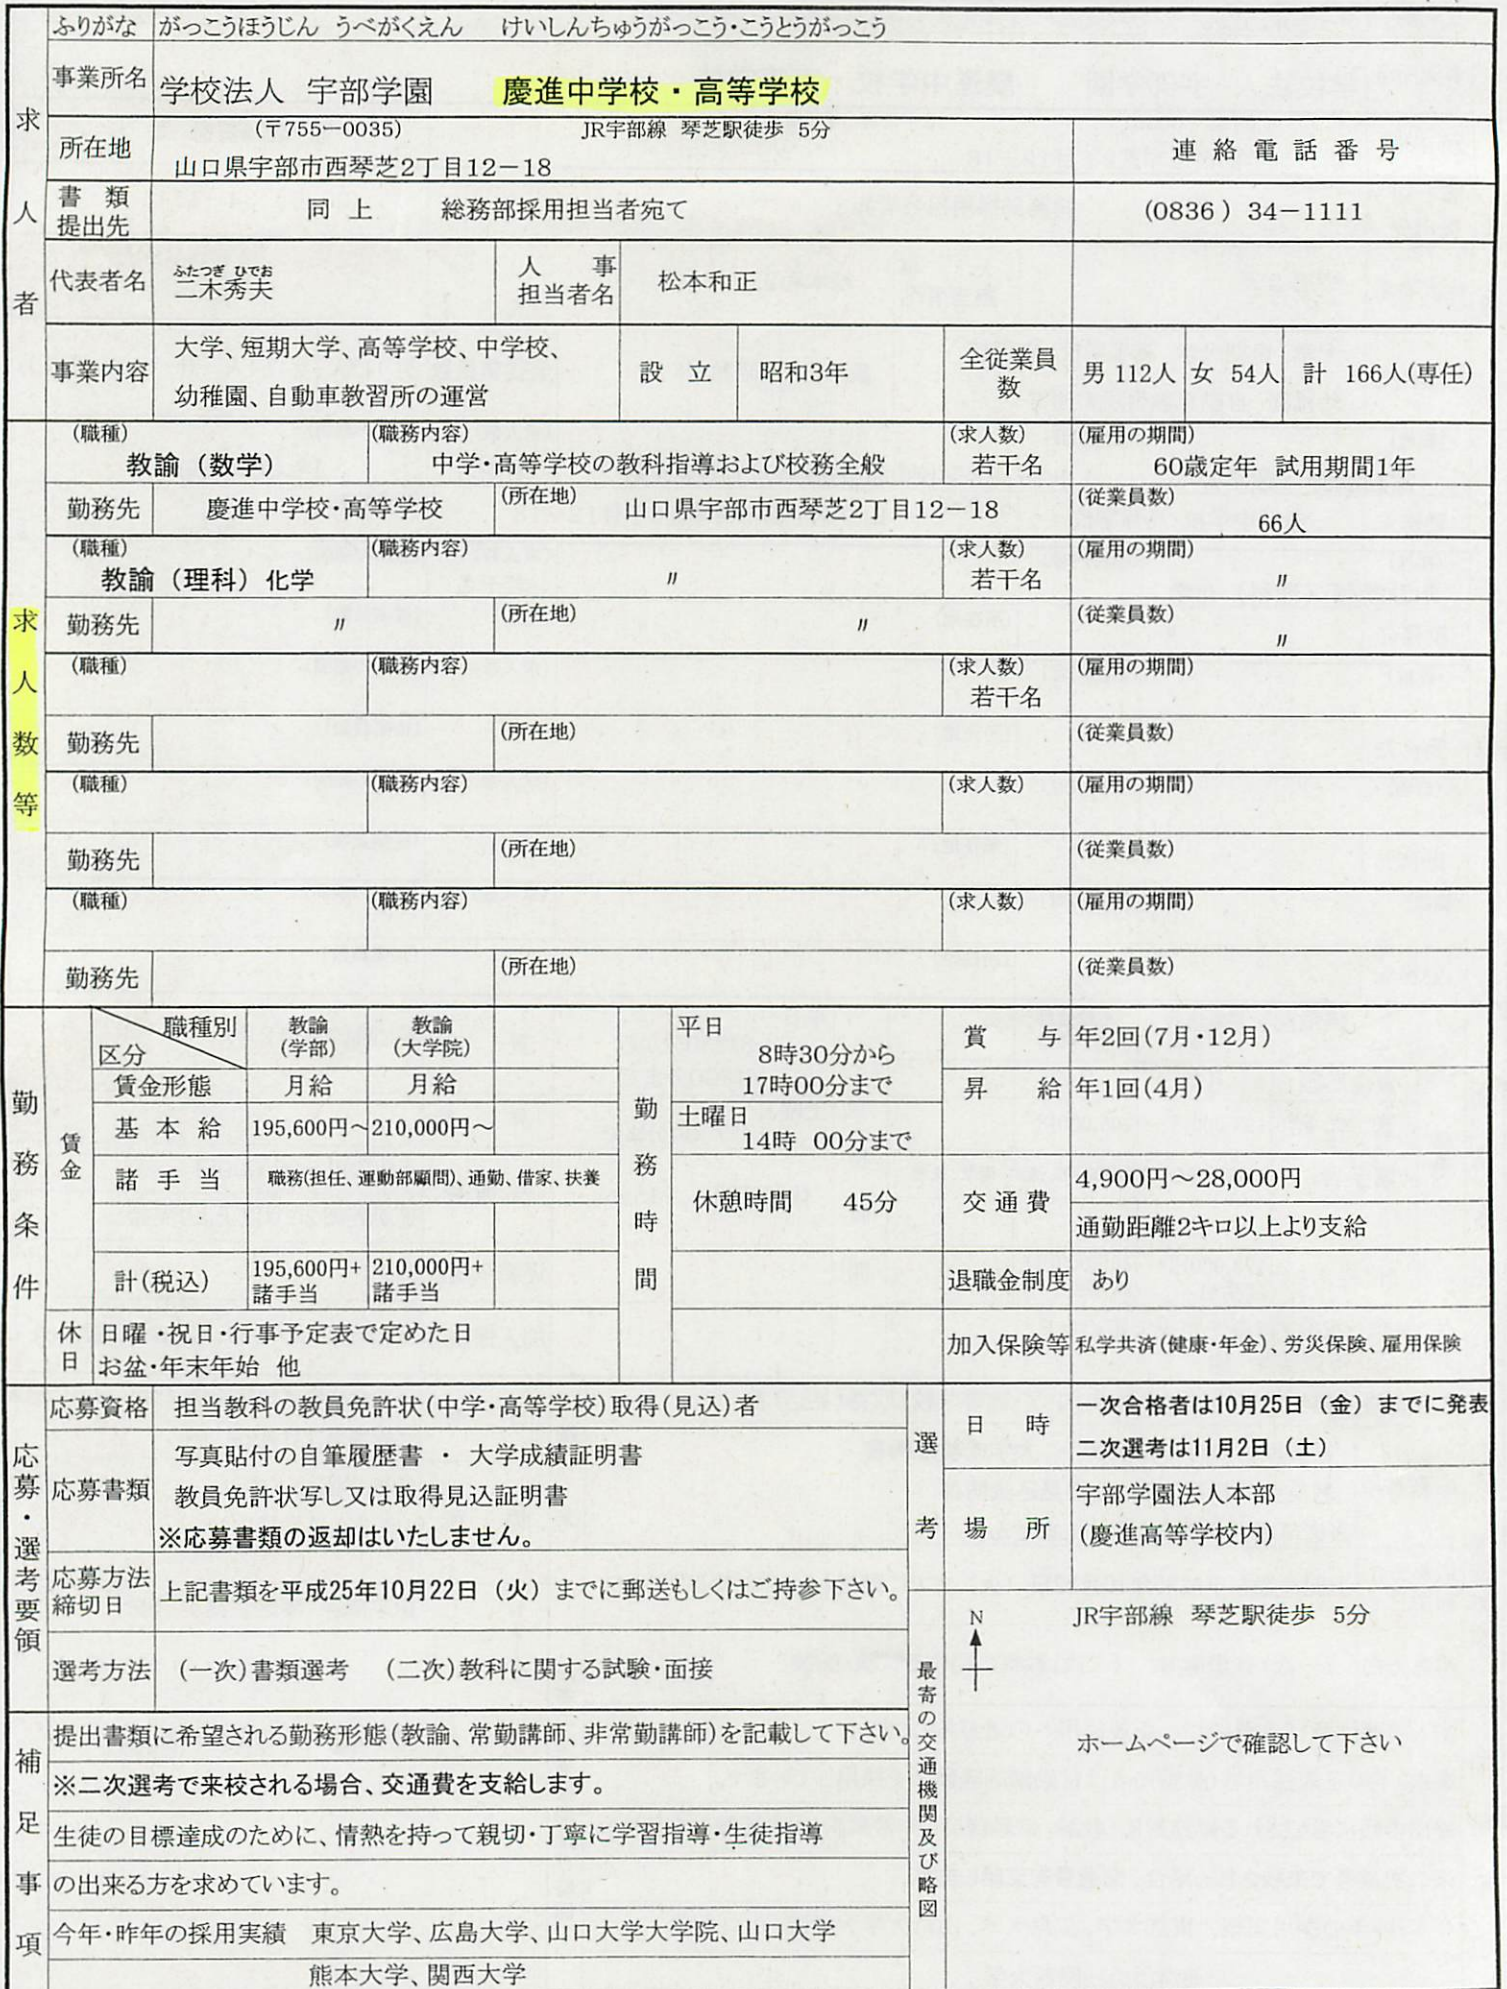 ふりがな がっこうほうじん うべがくえん けいしんちゅうがっこう・こうとうがっこう
求人者
事業所名 学校法人 宇部学園 慶進中学校・高等学校
所在地 (〒755-0035) JR宇部線 琴芝駅徒歩 5分
山口県宇部市西琴芝2丁目12-18
連絡電話番号
書類提出先 同上 総務部採用担当者宛て (0836)34-1111
代表者名 ふたつぎ ひでお
二木秀夫
人事担当者名 松本和正
事業内容 大学、短期大学、高等学校、中学校、
幼稚園、自動車教習所の運営
設立 昭和3年 全従業員数 男 112人 女 54人 計 166人(専任)
求人数等
(職種) (職務内容) (求人数) (雇用の期間)
教諭(数学) 中学・高等学校の教科指導および校務全般 若干名 60歳定年 試用期間1年
勤務先 慶進中学校・高等学校 (所在地) 山口県宇部市西琴芝2丁目12-18 (従業員数) 66人
(職種) (職務内容) (求人数) (雇用の期間)
教諭(理科)化学 〃 若干名 〃
勤務先 〃 (所在地) 〃 (従業員数) 〃
(職種) (職務内容) (求人数) (雇用の期間)
若干名
勤務先 (所在地) (従業員数)
(職種) (職務内容) (求人数) (雇用の期間)
勤務先 (所在地) (従業員数)
(職種) (職務内容) (求人数) (雇用の期間)
勤務先 (所在地) (従業員数)
勤務条件
賃金
職種別 区分 教諭(学部) 教諭(大学院)
賃金形態 月給 月給
基本給 195,600円~ 210,000円~
諸手当 職務(担任、運動部顧問)、通勤、借家、扶養
計(税込) 195,600円+諸手当 210,000円+諸手当
休日 日曜・祝日・行事予定表で定めた日
お盆・年末年始 他
勤務時間
平日
8時30分から
17時00分まで
土曜日
14時 00分まで
休憩時間 45分
賞与 年2回(7月・12月)
昇給 年1回(4月)
交通費 4,900円~28,000円
通勤距離2キロ以上より支給
退職金制度 あり
加入保険等 私学共済(健康・年金)、労災保険、雇用保険
応募・選考要領
応募資格 担当教科の教員免許状(中学・高等学校)取得(見込)者
応募書類 写真貼付の自筆履歴書 ・ 大学成績証明書
教員免許状写し又は取得見込証明書
※応募書類の返却はいたしません。
応募方法締切日 上記書類を平成25年10月22日(火)までに郵送もしくはご持参下さい。
選考方法 (一次)書類選考 (二次)教科に関する試験・面接
選考
日時 一次合格者は10月25日(金)までに発表
二次選考は11月2日(土)
場所 宇部学園法人本部
(慶進高等学校内)
補足事項
提出書類に希望される勤務形態(教諭、常勤講師、非常勤講師)を記載して下さい。
※二次選考で来校される場合、交通費を支給します。
生徒の目標達成のために、情熱を持って親切・丁寧に学習指導・生徒指導
の出来る方を求めています。
今年・昨年の採用実績 東京大学、広島大学、山口大学大学院、山口大学
熊本大学、関西大学
最寄の交通機関及び略図
N
JR宇部線 琴芝駅徒歩 5分
ホームページで確認して下さい